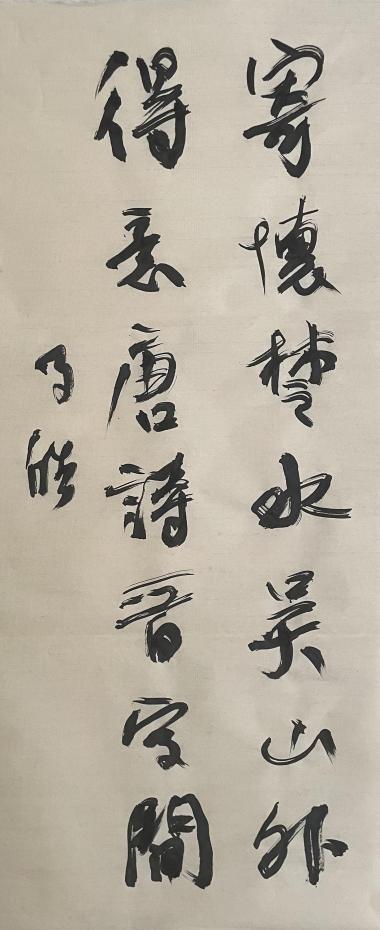 寄懷楚水吳山外
得意唐詩晉字間
子皓